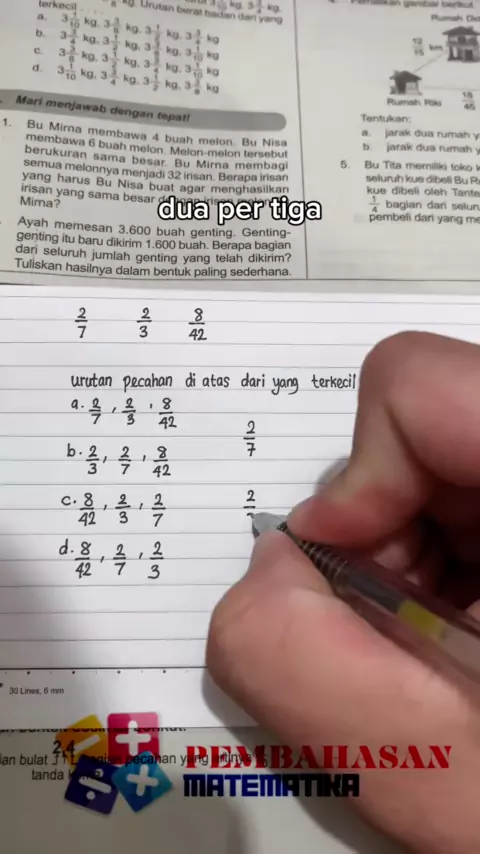 terkecil . . . .
a. 3 1/10 kg, 3 3/8 kg, 3 1/2 kg, 3 3/4 kg
b. 3 3/4 kg, 3 1/2 kg, 3 3/8 kg, 3 1/10 kg
c. 3 3/8 kg, 3 1/2 kg, 3 3/4 kg, 3 1/10 kg
d. 3 1/10 kg, 3 3/4 kg, 3 1/2 kg, 3 3/8 kg
Mari menjawab dengan tepat!
1. Bu Mirna membawa 4 buah melon. Bu Nisa
membawa 6 buah melon. Melon-melon tersebut
berukuran sama besar. Bu Mirna membagi
semua melonnya menjadi 32 irisan. Berapa irisan
yang harus Bu Nisa buat agar menghasilkan
irisan yang sama besar
Mirna?
Ayah memesan 3.600 buah genting. Genting-
genting itu baru dikirim 1.600 buah. Berapa bagian
dari seluruh jumlah genting yang telah dikirim?
Tuliskan hasilnya dalam bentuk paling sederhana.
Rumah Riki
km
Tentukan:
a. jarak dua rumah y
b. jarak dua rumah
5. Bu Tita memiliki toko
seluruh kue dibeli Bu R
kue dibeli oleh Tante
1/4 bagian dari selur
pembeli dari yang me
dua per tiga
2/7 2/3 8/42
urutan pecahan di atas dari yang terkecil
a. 2/7 , 2/3 , 8/42
b. 2/3 , 2/7 , 8/42
c. 8/42 , 2/3 , 2/7
d. 8/42 , 2/7 , 2/3
2/7
2
30 Lines, 6 mm
lan bulat
pecahan yang
tanda
PEMBAHASAN
MATEMATIKA